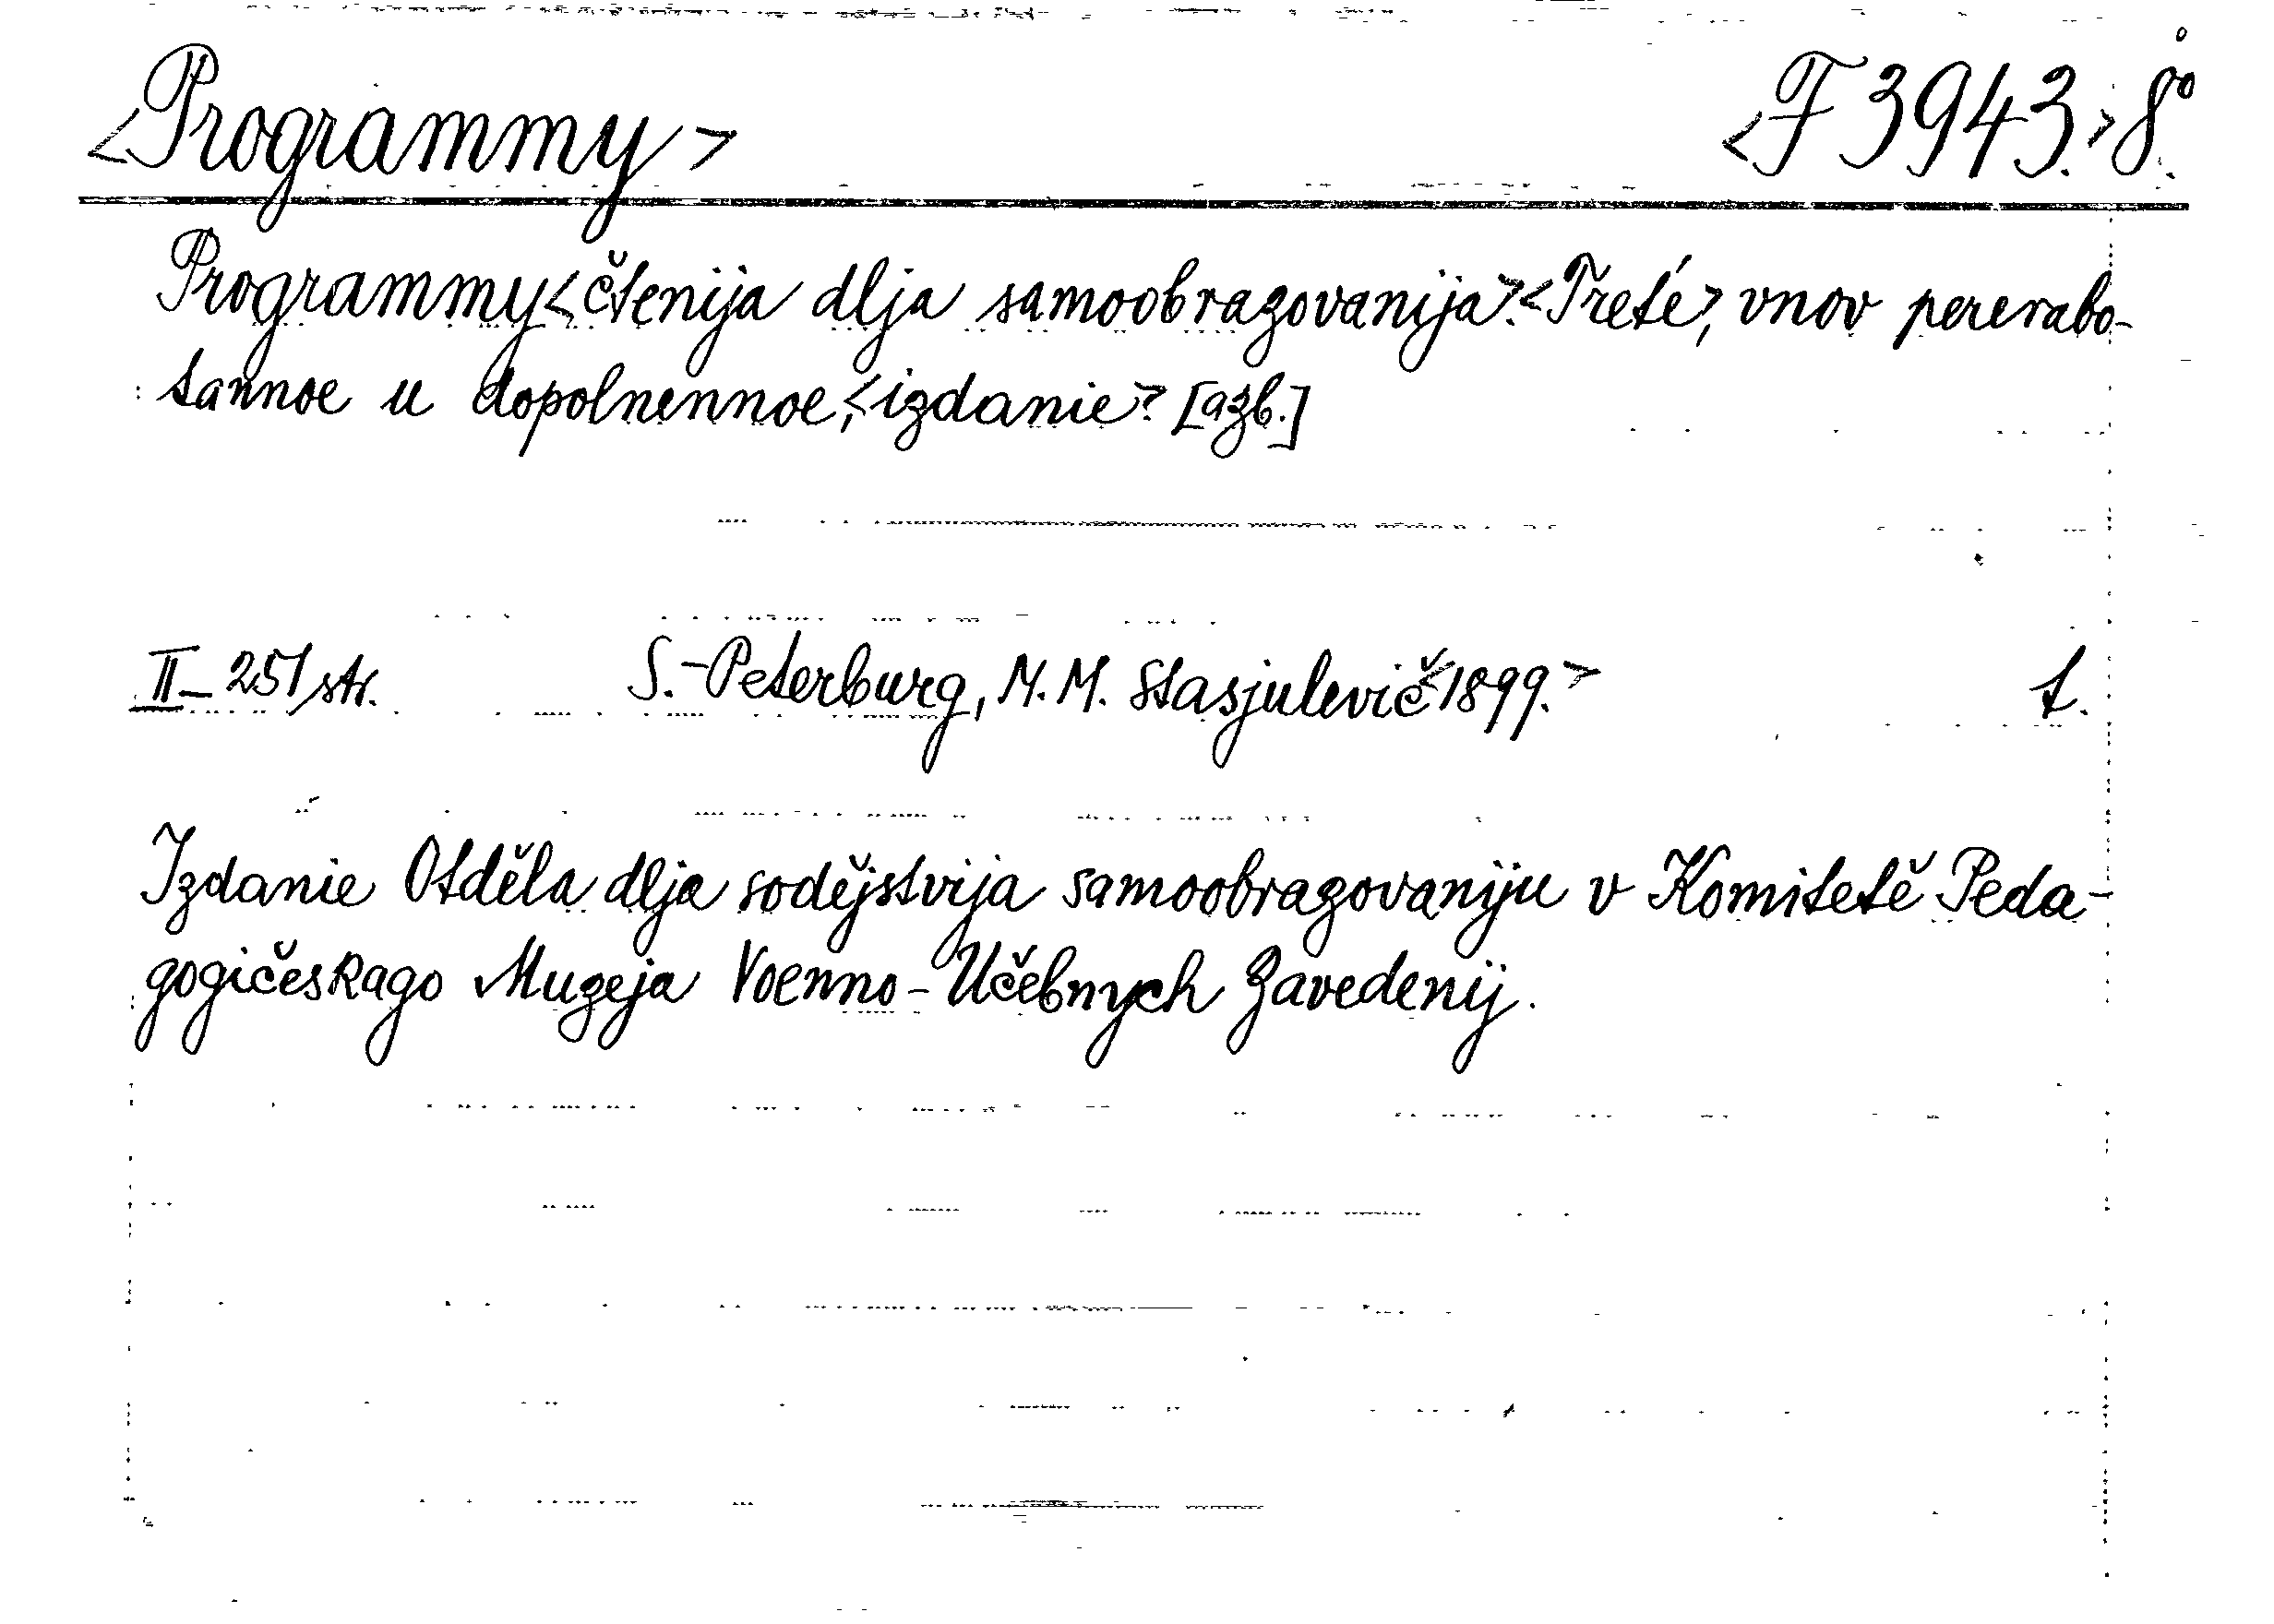 <Programmy> <F 3943.> 8°.
Programmy <čtenija dlja samoobrazovanija>. <Třeté>, vnov pererabo-
tannoe u dopolnennoe, <izdanie> [azb.]
II-251 str. S.-Peterburg, M. M. Stasjulevič <1899.> t.
Izdanie Otděla dlja sodějstvija samoobrazovaniju v Komitetě Peda-
gogičeskago Muzeja Voenno-Učebnych Zavedenij.